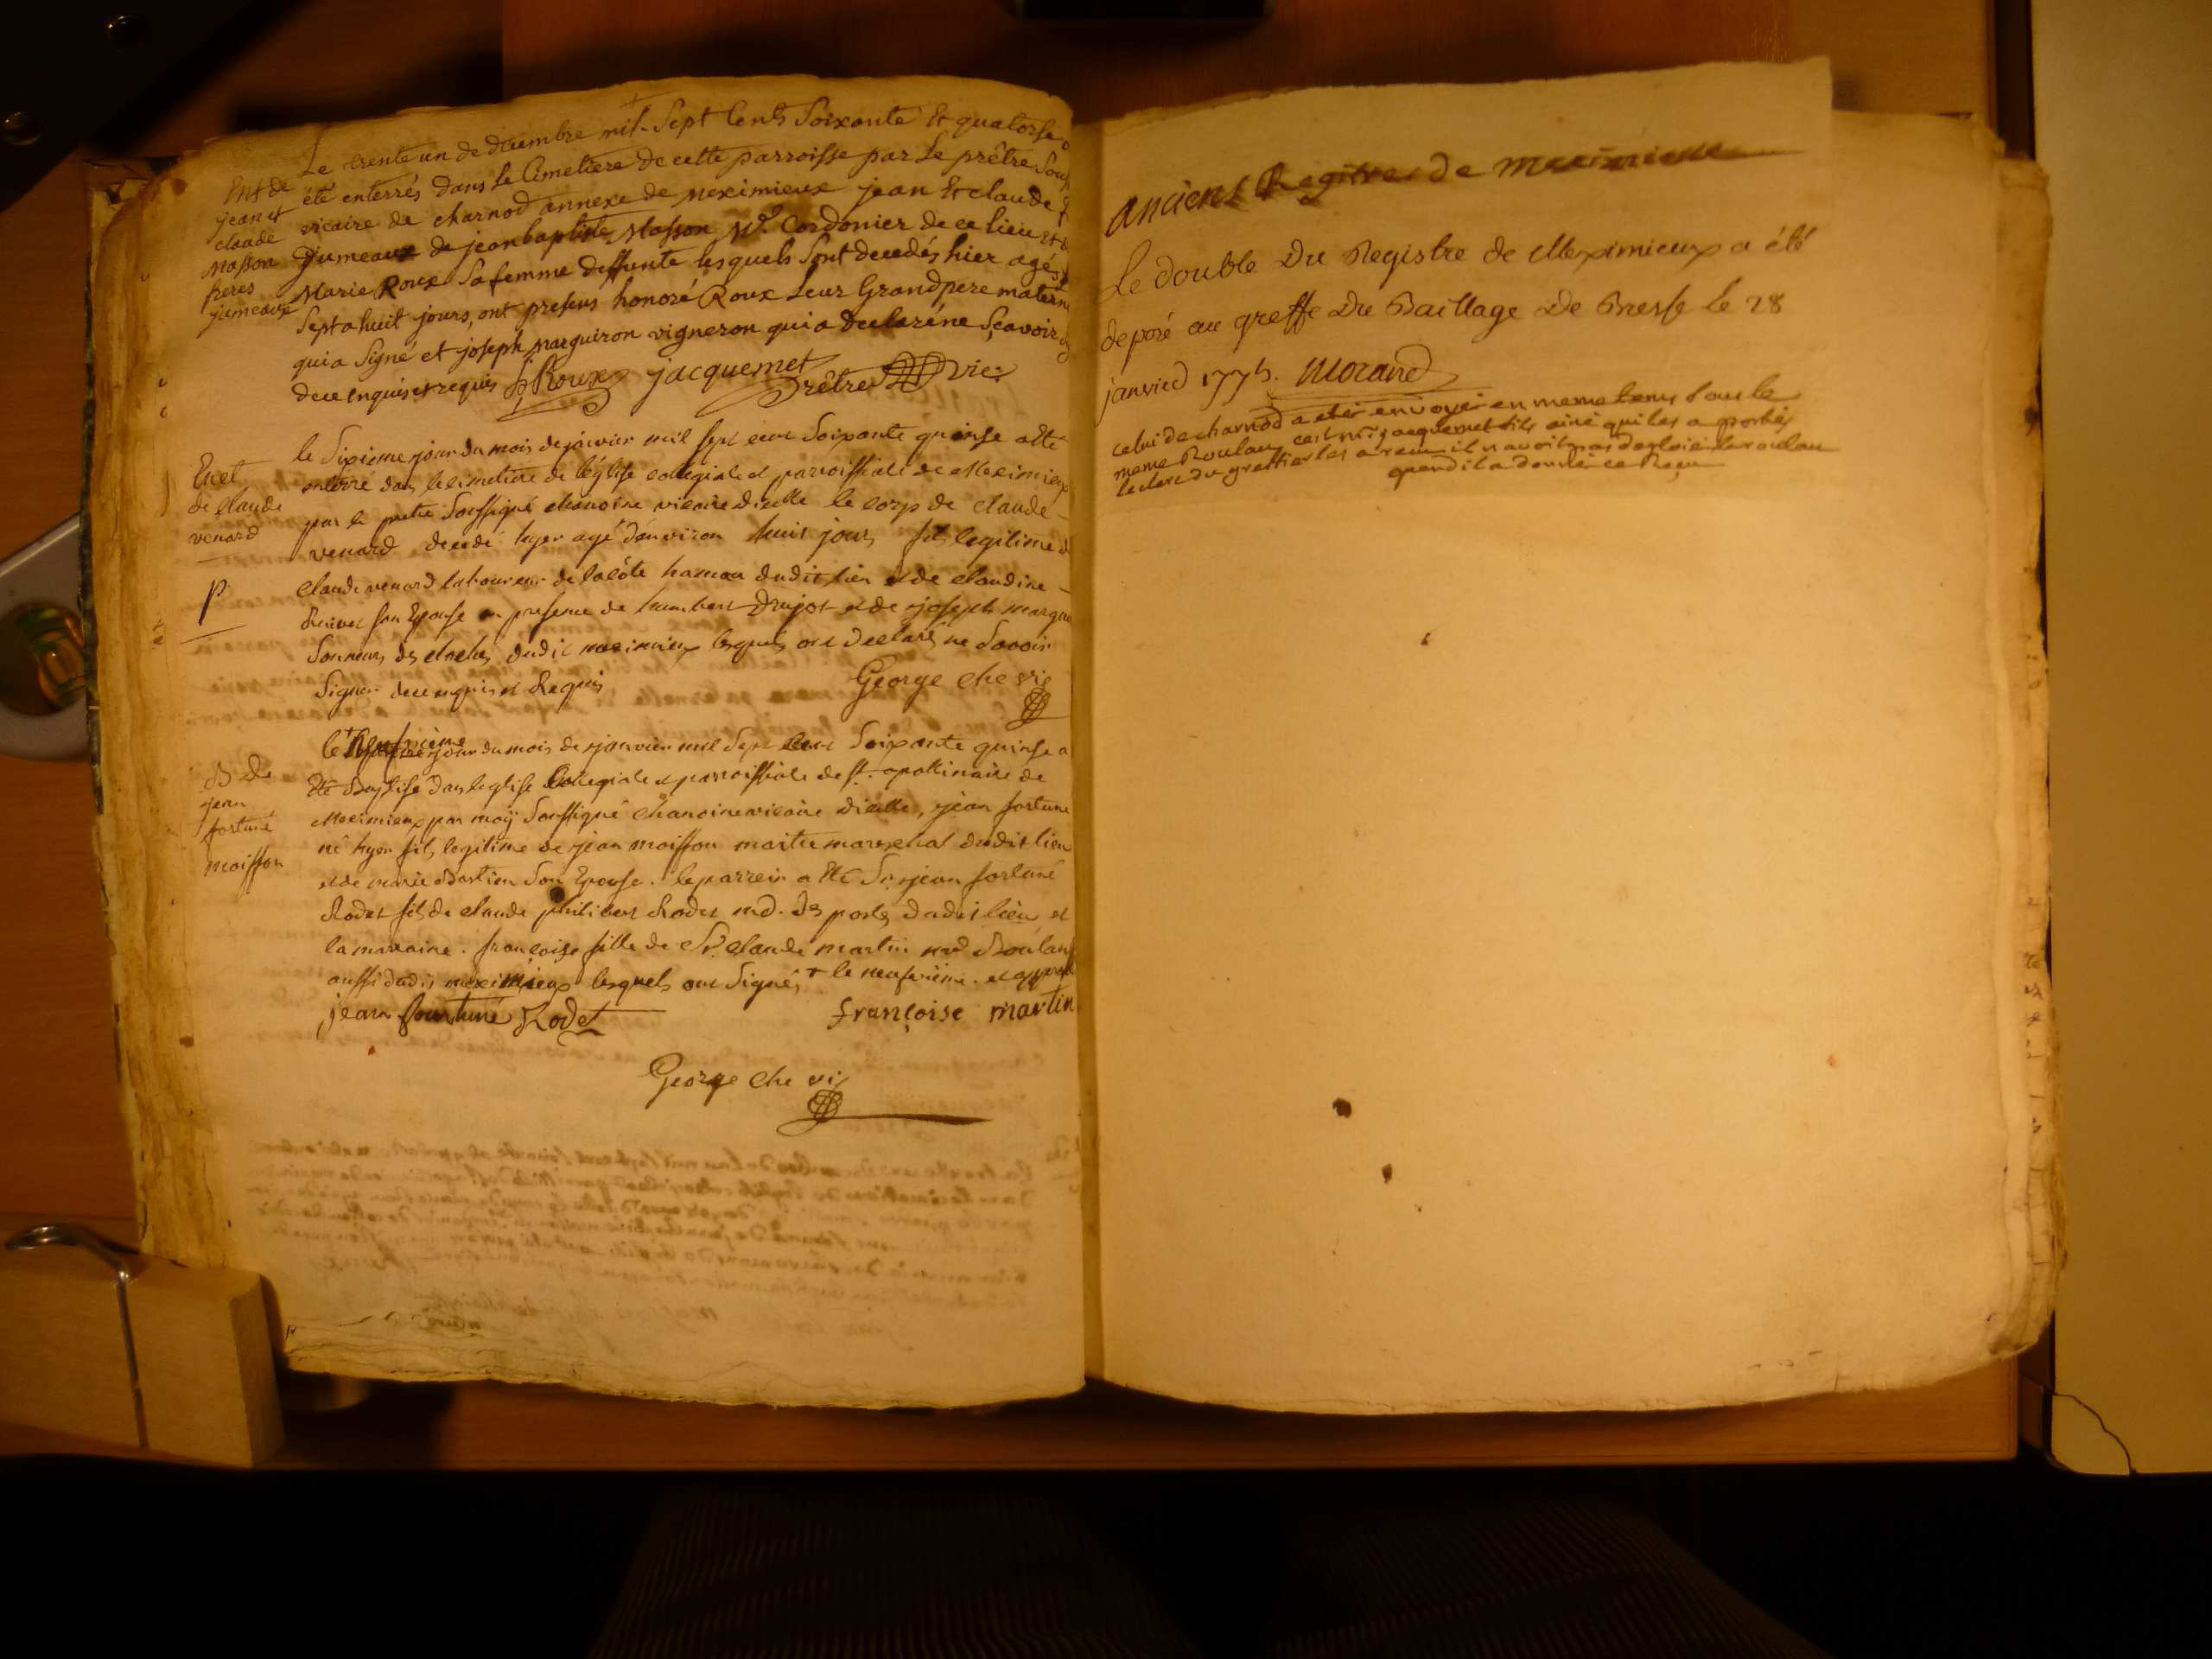 Le trente un de decembre mil Sept Cents Soixante Et quatorse
Ent de
jean et
claude
Masson
freres
jumeaux
été enterrés dans le Cimetiere de cette parroisse par Le prêtre Sous
vicaire de charnod annexe de meximieux jean Et claude
Jumeaux de jean baptiste Masson Md. Cordonier de ce lieu Et de
Marie Roux Sa femme deffunte lesquels Sont decedés hier agés
Sept a huit jours, ont presens honoré Roux Leur Grandpere materne
qui a Signé et joseph marguiron vigneron qui a declaré ne Sçavoir
de ce enquis et requis h Roux jacquemet Prêtre vic:
Enet
de Claude
venard
P
le Sixieme jour du mois de janvier mil sept cent Soixante quinse a été
enterré dans le cimetiere de l'église collegiale et parroissiale de Meximieux
par le pretre Soussigné chanoine vicaire d'icelle le corps de claude
venard decedé hyer agé d'anviron huit jours fils legitime de
Claude venard laboureur de la côte hamau dudit lieu et de claudine
son Epouse en presence de humbert Drujot et de joseph margui
Sonneurs des cloches dudit meximieux lesquels ont declaré ne Savoir
Signer de ce enquis et Requis George che vic
B de
jean
fortuné
moisson
le neufvieme jour du mois de janvier mil Sept Cent Soixante quinse a
Eté Baptisé dans leglise Collegiale et parroissiale de st. apollinaire de
Meximieux par moy Soussigné Chanoine vicaire d'icelle, jean fortuné
né hyer fils legitime de jean moisson maitre marechal dudit lieu
et de marie Bastien Son Epouse. le parrein a Eté Sr. jean fortuné
Rodet fils de claude philibert Rodet md. des postes dudit lieu et
la marraine. françoise fille de Sr. claude martin md Boulang
aussi dudit meximieux lesquels ont Signés + le neufvieme. et approuvé
jean fourtuné Rodet françoise martin
George che vic
ancient Regitre de meximieux
Le double Du Registre de Meximieux a été
deposé au greffe Du Baillage De Bresse Le 28
janvied 1775. Morand
celui de charnod a eter envoyer en meme tems sous le
meme Roulau cest mr. jacquemet fils ainé qui les a portés
le clerc du greffier les a reçu il n'avoit pas deploié le roulau
quand il a donné ce Reçu